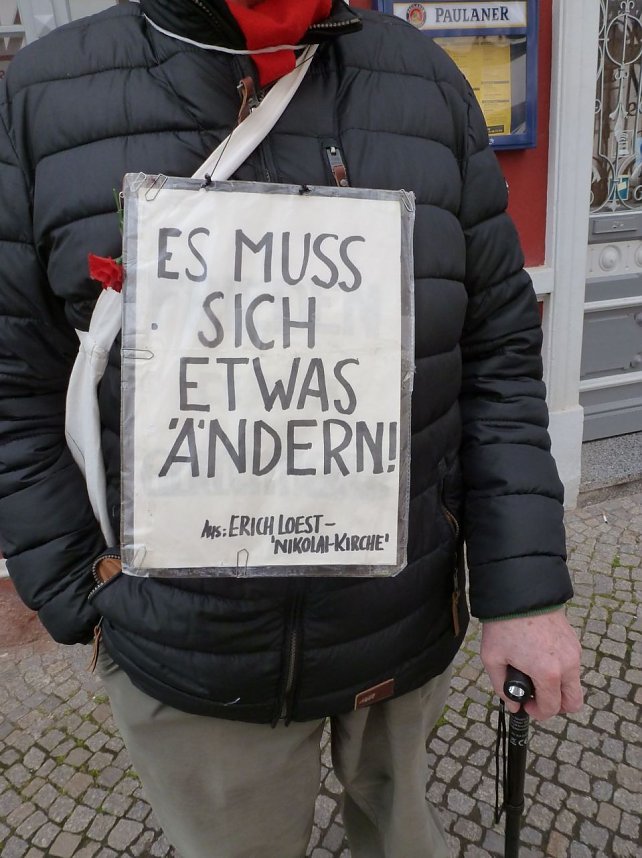 PAULANER
ES MUSS
SICH
ETWAS
ÄNDERN!
Aus: ERICH LOEST-
'NIKOLAI-KIRCHE'